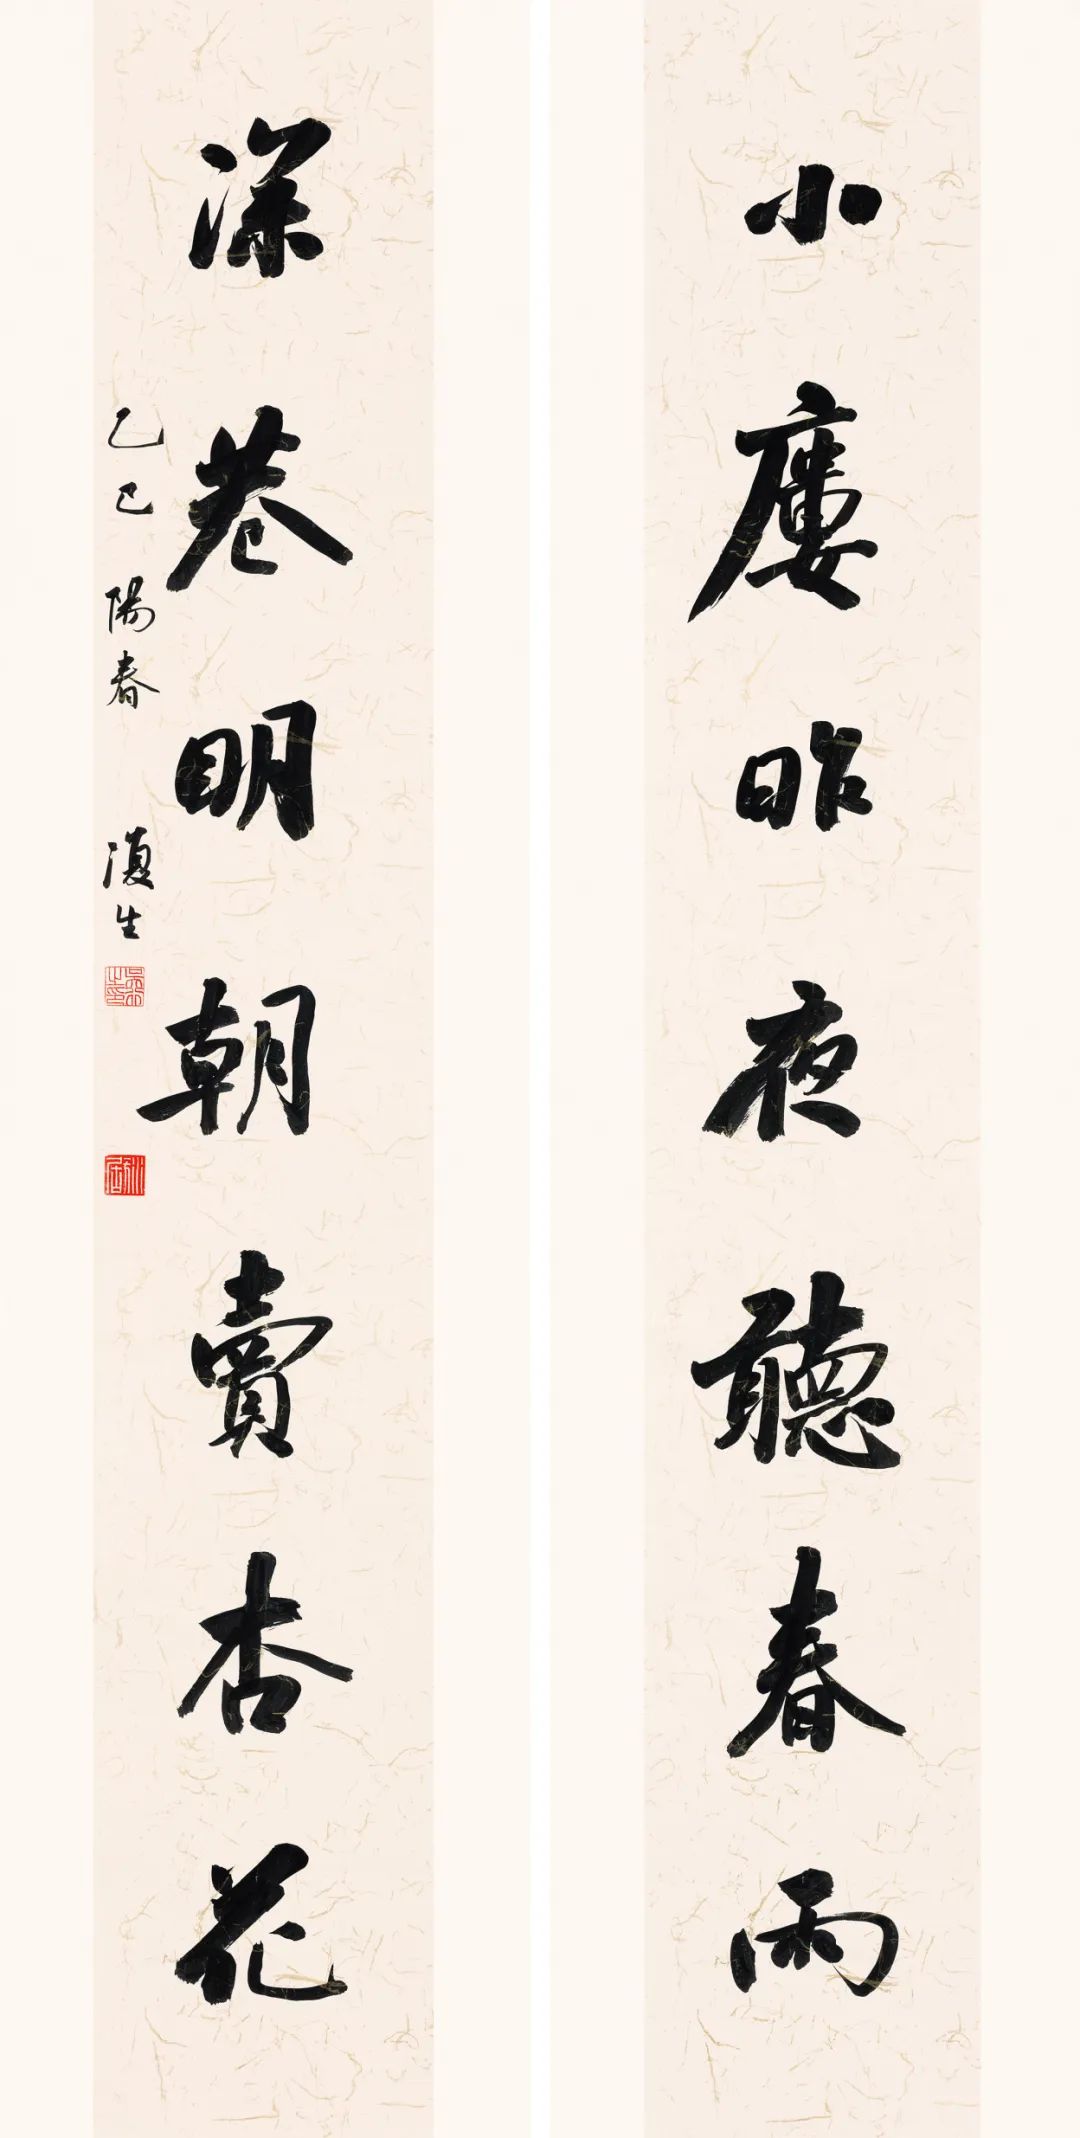 小廔昨夜聽春雨
深巷明朝賣杏花
乙巳陽春
復生